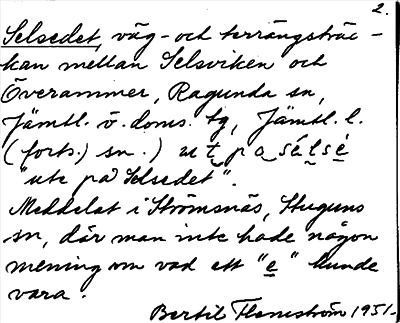 2.
Selsedet, väg- och terrängsträc-
kan mellan Selsviken och
Överammer, Ragunda sn,
Jämtl. ö. doms. tg, Jämtl. l.
(forts.) sn.) ut pa sélsè
"ute på Selsedet".
Meddelat i Strömsnäs, Stuguns
sn, där man inte hade någon
mening om vad ett "e" kunde
vara.
Bertil Flemström 1951.